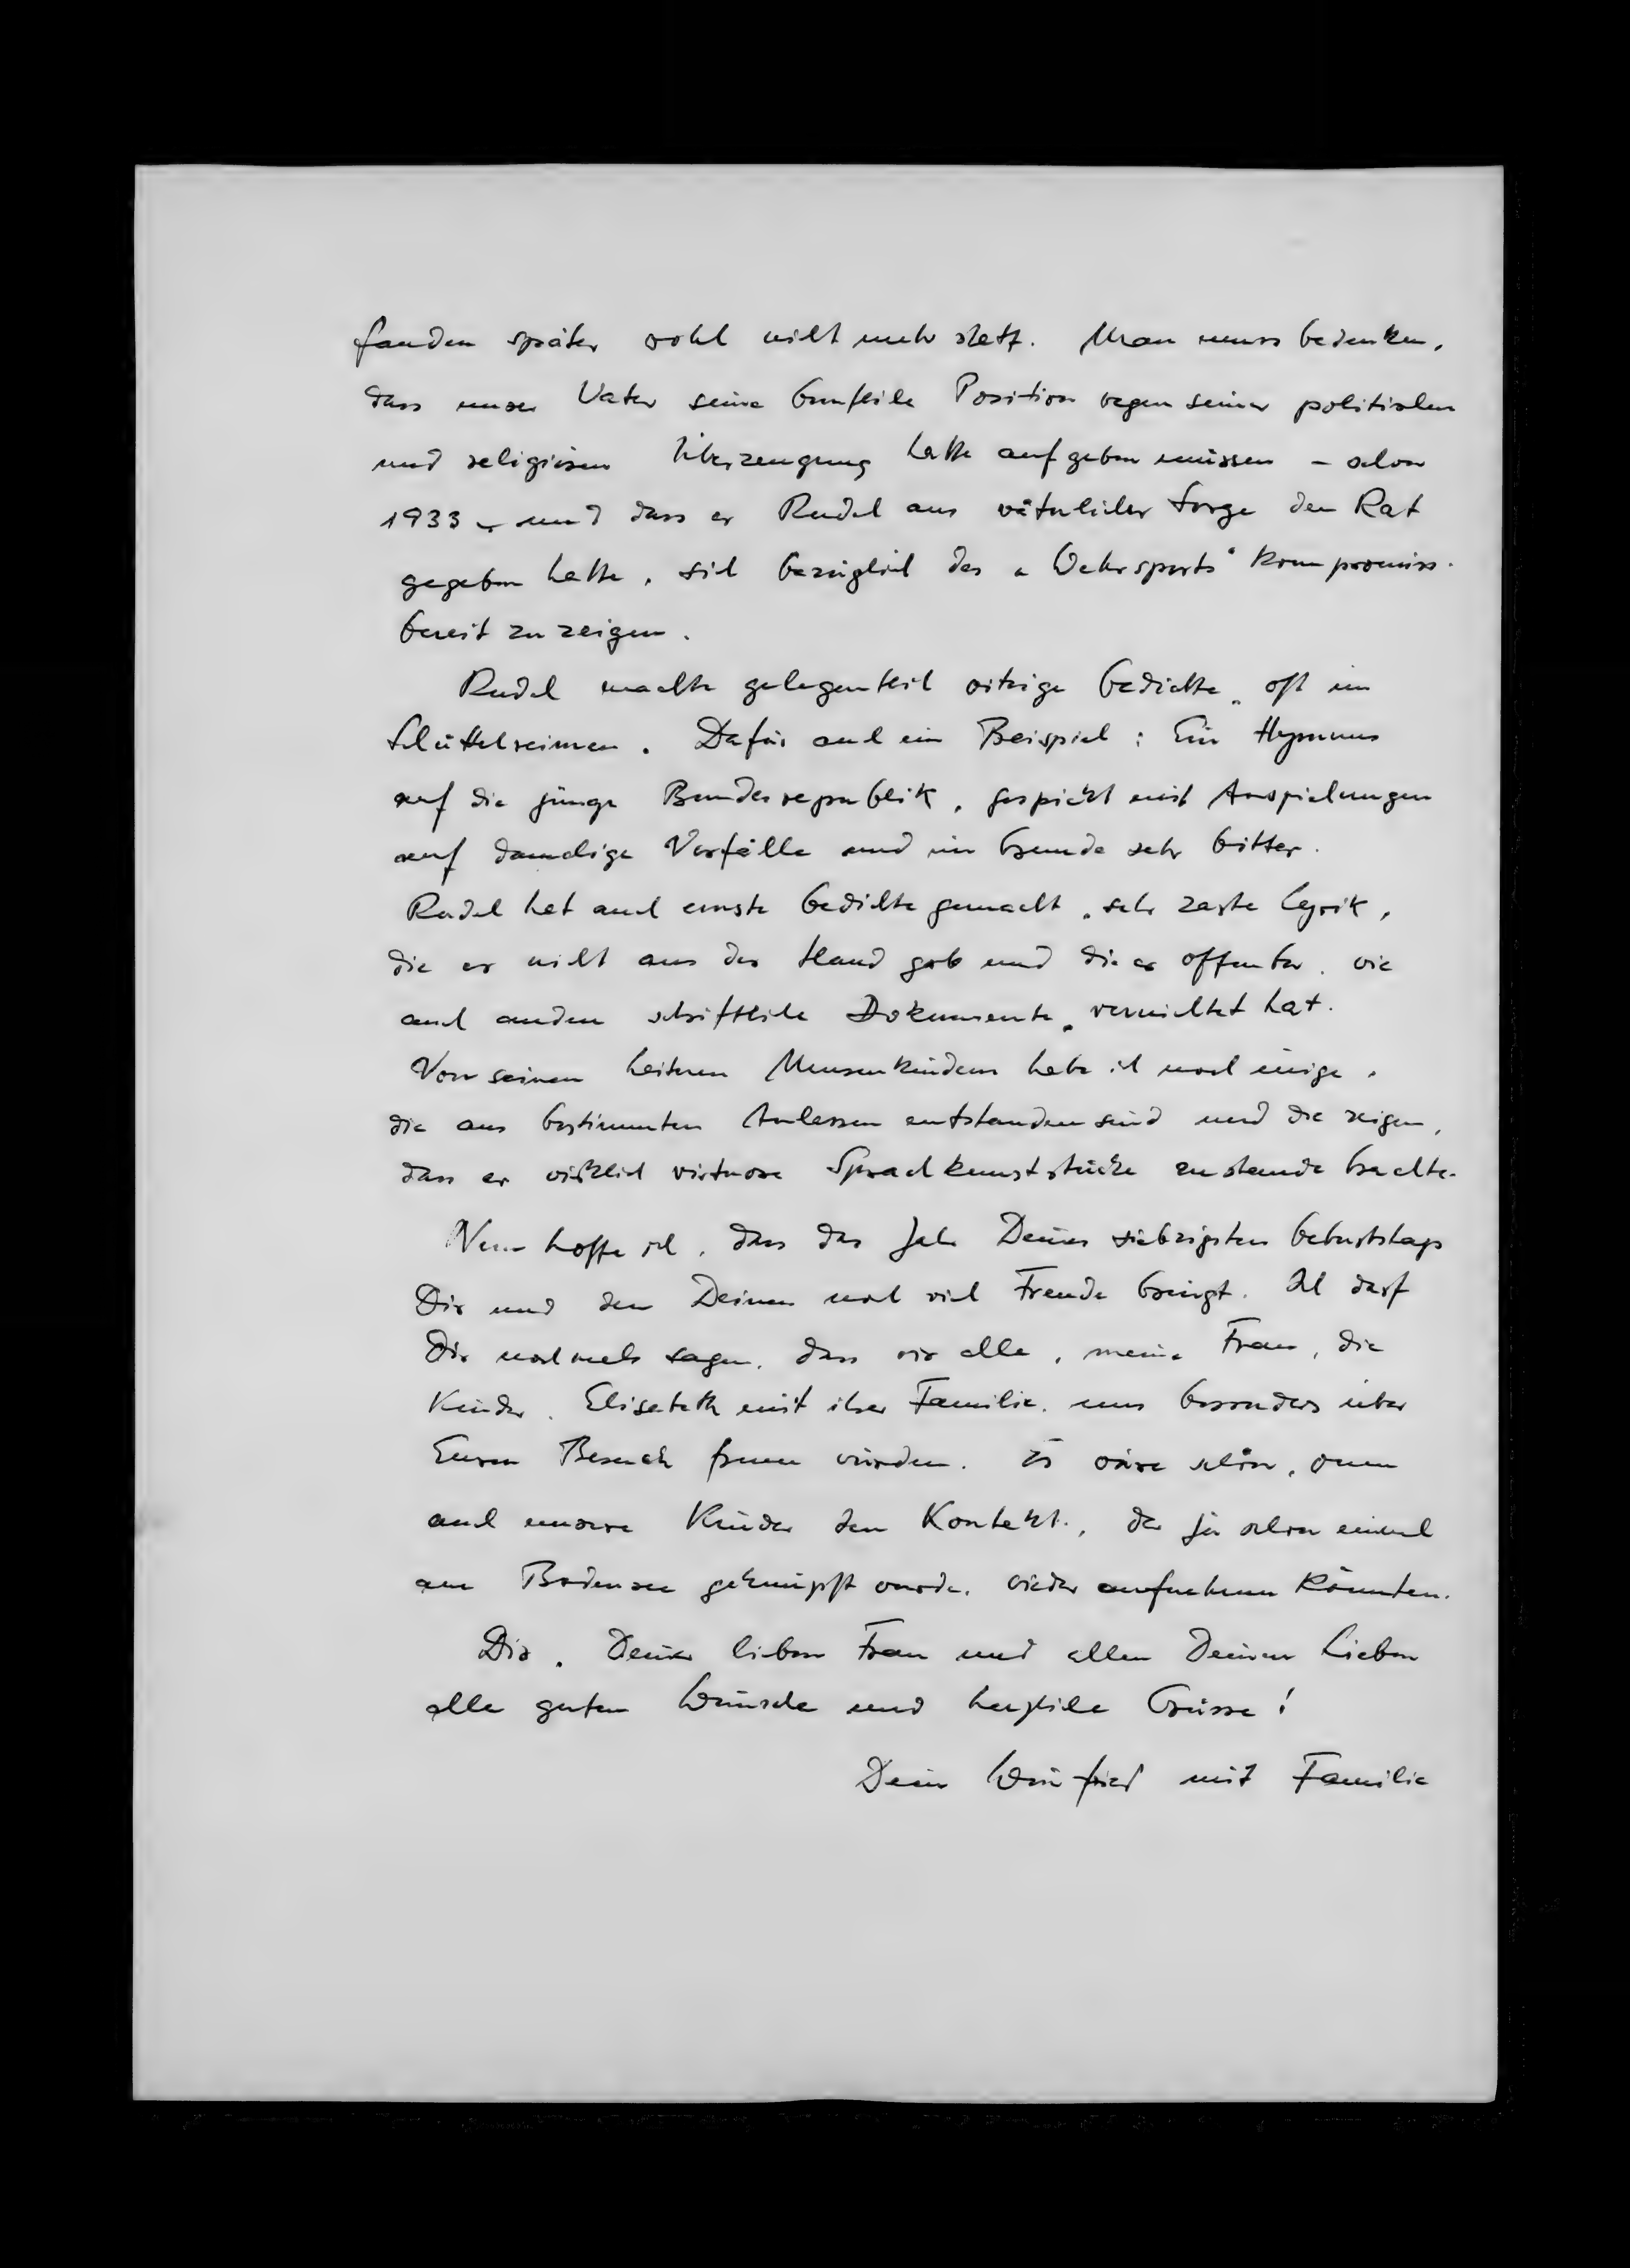 fanden später wohl nicht mehr statt. Man muss bedenken,
dass unser Vater seine berufliche Position wegen seiner politischen
und religiösen Überzeugung hatte aufgeben müssen – schon
1933 – und dass er Rudel aus väterlicher Sorge den Rat
gegeben hatte, sich bezüglich des „Wehrsports" kompromiss-
bereit zu zeigen.
Rudel machte gelegentlich witzige Gedichte, oft in
Schüttelreimen. Dafür auch ein Beispiel: Ein Hymnus
auf die junge Bundesrepublik, gespickt mit Anspielungen
auf damalige Vorfälle und im Grunde sehr bitter.
Rudel hat auch ernste Gedichte gemacht, sehr zarte Lyrik,
die er nicht aus der Hand gab und die er offenbar, wie
auch andere schriftliche Dokumente, vernichtet hat.
Von seinen heiteren Musenkindern habe ich noch einige,
die aus bestimmten Anlässen entstanden sind und die zeigen,
dass er wirklich virtuose Sprachkunststücke zustande brachte.
Nun hoffe ich, dass das Jahr Deines siebzigsten Geburtstags
Dir und den Deinen noch viel Freude bringt. Ich darf
Dir nochmals sagen, dass wir alle, meine Frau, die
Kinder, Elisabeth mit ihrer Familie, uns besonders über
Euren Besuch freuen würden. Es wäre schön, wenn
auch unsere Kinder den Kontakt, der ja schon einmal
am Bodensee geknüpft wurde, wieder aufnehmen könnten.
Dir, Deiner lieben Frau und allen Deinen Lieben
alle guten Wünsche und herzliche Grüsse!
Dein Winfried mit Familie